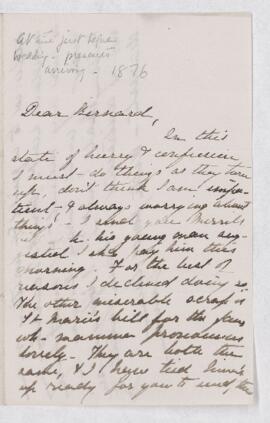 at time just before
wedding - presents
arriving - 1876
Dear Bernard,
In this
state of hurry & confusion
I must do things as they turn
up, don't think I am impa-
tient - & always worrying about
they! - I send you Morrell
his young man
I sh'd pay him this
morning. For the best of
reasons I declined doing so.
The other miserable scrap is
St Marie's bill for the
wh. mamma pronounces
lovely - They are both the
same, & I have tied
up ready for you to send the